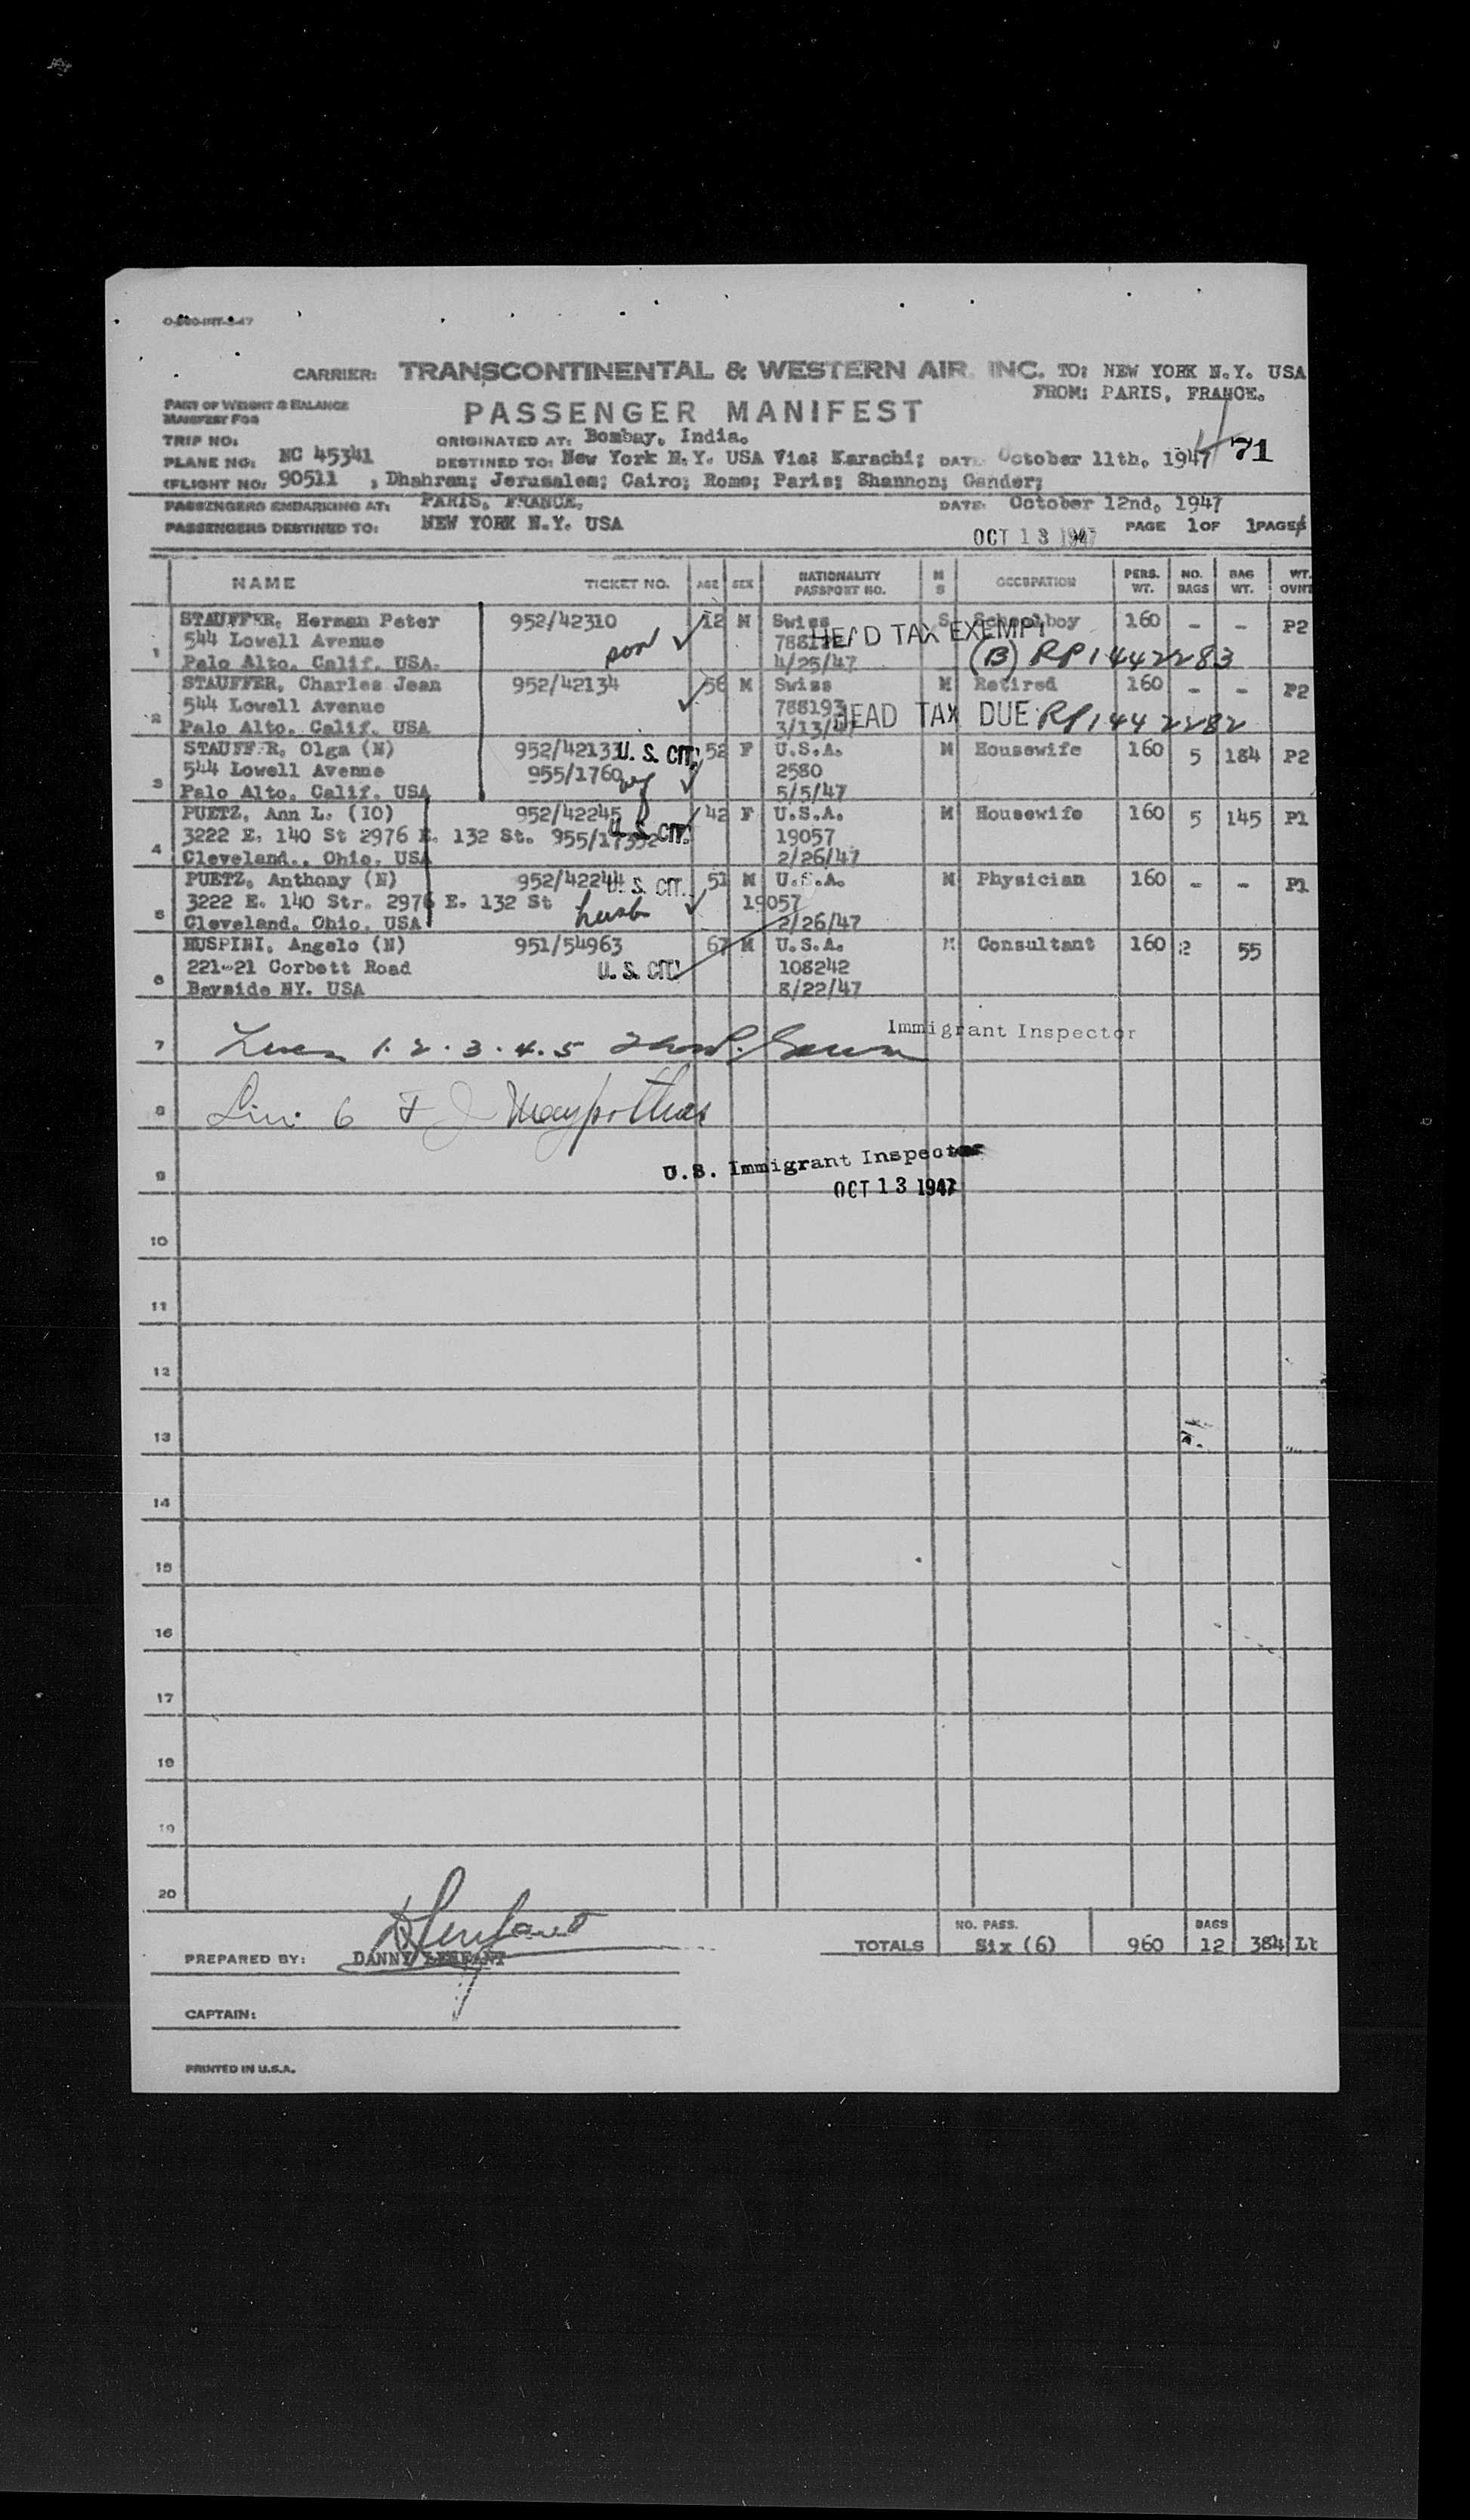 CARRIER: TRANSCONTINENTAL & WESTERN AIR, INC. TO: NEW YORK N.Y. USA
FROM: PARIS, FRANCE.
PART OF WEIGHT & BALANCE
MANIFEST FOR
PASSENGER MANIFEST
TRIP NO:
ORIGINATED AT: Bombay, India.
PLANE NO: NC 45341
DESTINED TO: New York N.Y. USA Via: Karachi; DATE October 11th, 1947 71
(FLIGHT NO: 90511 , Dhahran; Jerusalem; Cairo; Rome; Paris; Shannon; Gander;
PASSENGERS EMBARKING AT: PARIS, FRANCE. DATE: October 12nd, 1947
PASSENGERS DESTINED TO: NEW YORK N.Y. USA OCT 13 1947 PAGE 1 OF 1 PAGES
NAME TICKET NO. AGE SEX NATIONALITY PASSPORT NO. M S OCCUPATION PERS. WT. NO. BAGS BAG WT. WT. OVNT
STAUFFER, Herman Peter 952/42310 12 M Swiss S Schoolboy 160 - - P2
544 Lowell Avenue son HEAD TAX EXEMPT
1 Palo Alto, Calif. USA. 4/25/47 (B) RP1442283
STAUFFER, Charles Jean 952/42134 56 M Swiss M Retired 160 - - P2
544 Lowell Avenue 788193 HEAD TAX DUE RP1442282
2 Palo Alto, Calif. USA 3/13/47
STAUFFER, Olga (N) 952/42133 U. S. CIT. 52 F U.S.A. M Housewife 160 5 184 P2
544 Lowell Avenue 955/1760 2580
3 Palo Alto, Calif. USA 5/5/47
PUETZ, Ann L. (IO) 952/42245 42 F U.S.A. M Housewife 160 5 145 P1
3222 E. 140 St 2976 E. 132 St. 955/17352 U. S. CIT. 19057
4 Cleveland., Ohio, USA 2/26/47
PUETZ, Anthony (N) 952/42244 U. S. CIT. 51 M U.S.A. M Physician 160 - - P1
3222 E. 140 Str. 2976 E. 132 St husb 19057
5 Cleveland, Ohio, USA 2/26/47
RUSPINI, Angelo (N) 951/54963 67 M U.S.A. M Consultant 160 2 55
221-21 Corbett Road U. S. CIT. 108242
6 Bayside NY. USA 8/22/47
Immigrant Inspector
7 1. 2. 3. 4. 5
8 6
U.S. Immigrant Inspector
9 OCT 13 1947
10
11
12
13
14
15
16
17
18
19
20
NO. PASS. BAGS
TOTALS Six (6) 960 12 384 Lt
PREPARED BY: DANNY LENFANT
CAPTAIN:
PRINTED IN U.S.A.